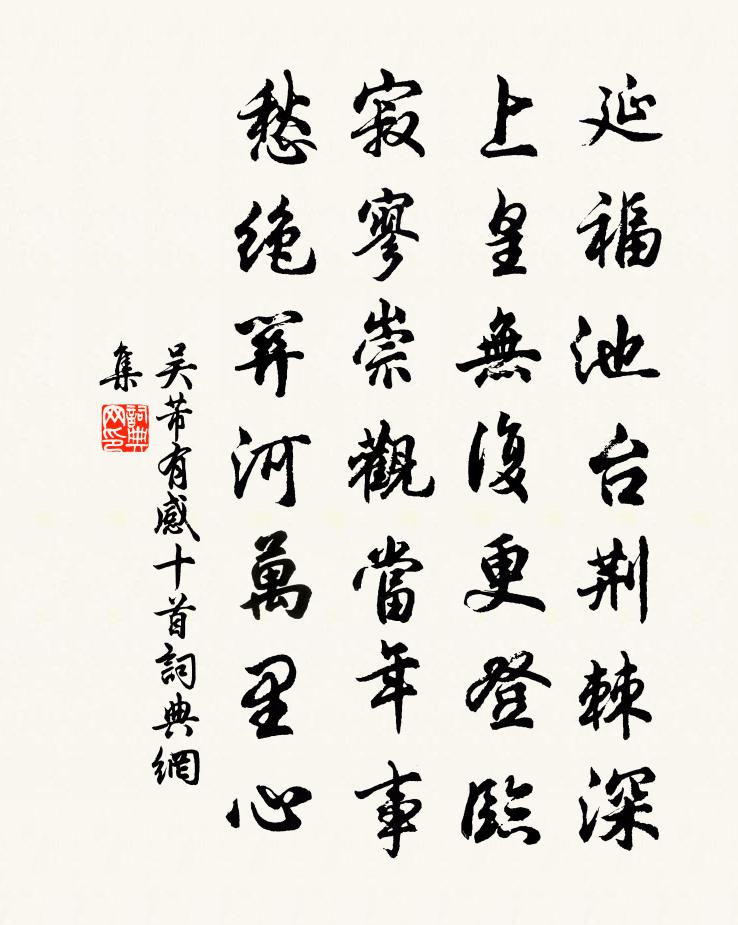 延福池台荆棘深
上皇無復更登臨
寂寥崇觀當年事
愁绝関河萬里心
吴芾有感十首詞典網
集
詞典网印